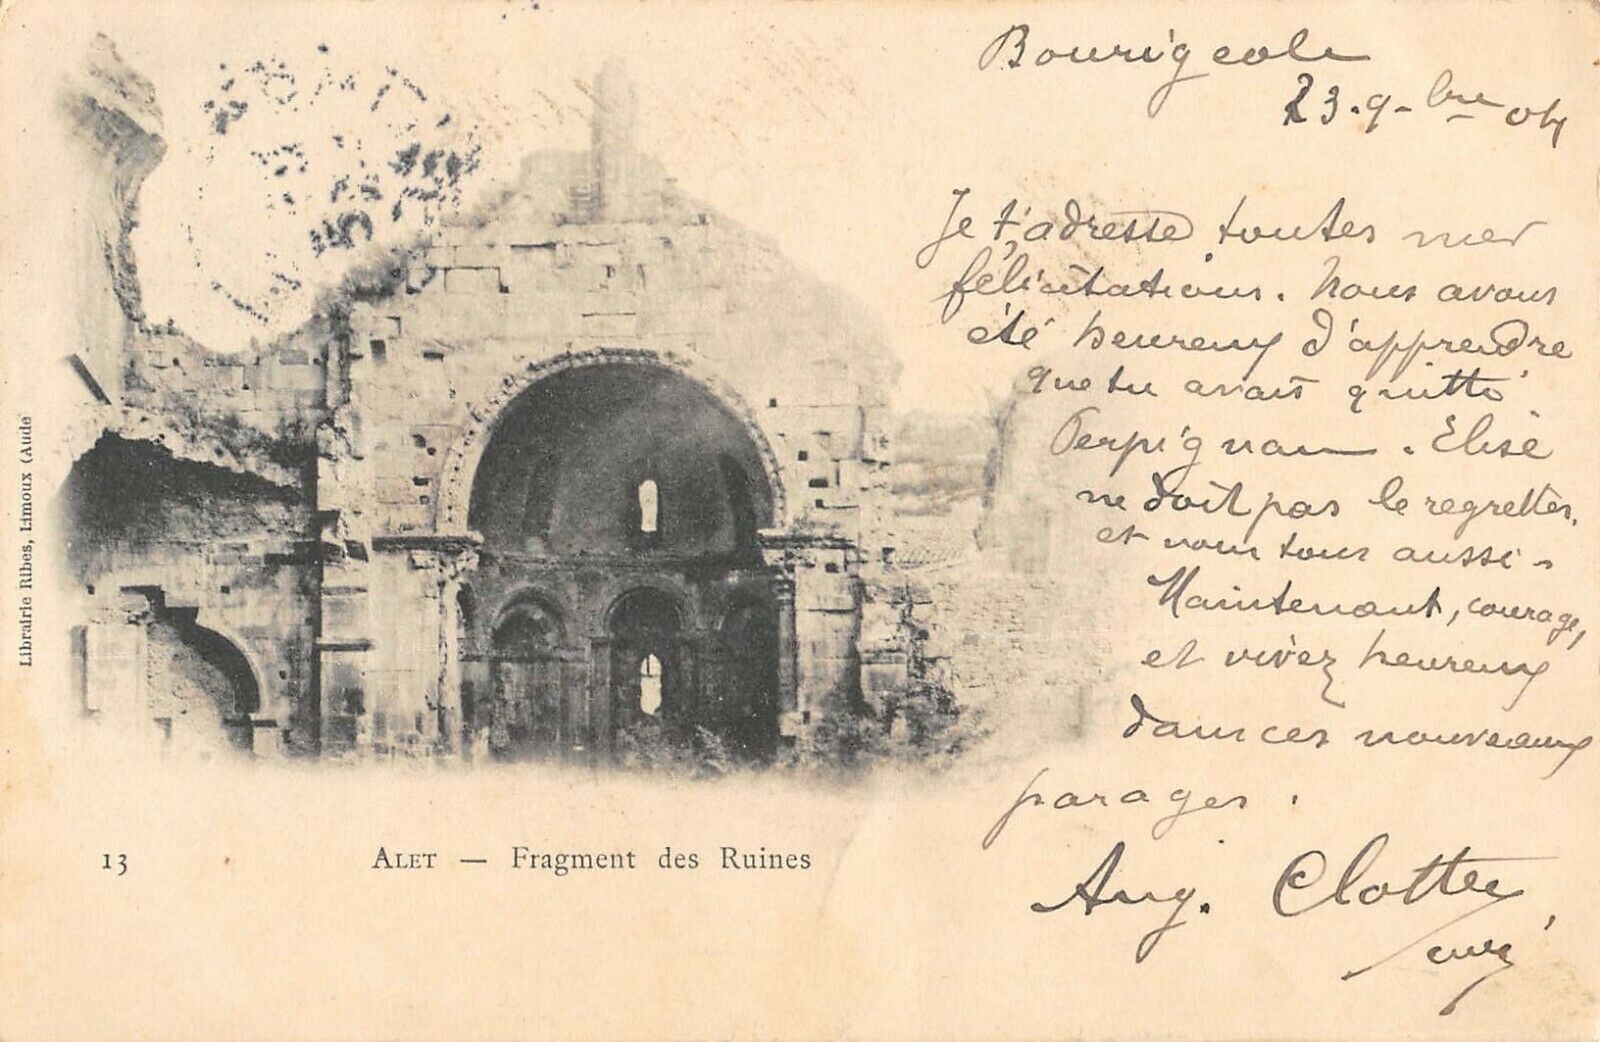 Bourigeole
23-9-bre 04
Je t'adresse toutes mes
félicitations. Nous avons
été heureux d'apprendre
que tu avais quitté
Perpignan. Elise
ne doit pas le regretter,
et nous tous aussi -
Maintenant, courage,
et vivez heureux
dans ces nouveaux
parages.
Aug.
curé
Librairie Ribes, Limoux (Aude
13 ALET — Fragment des Ruines